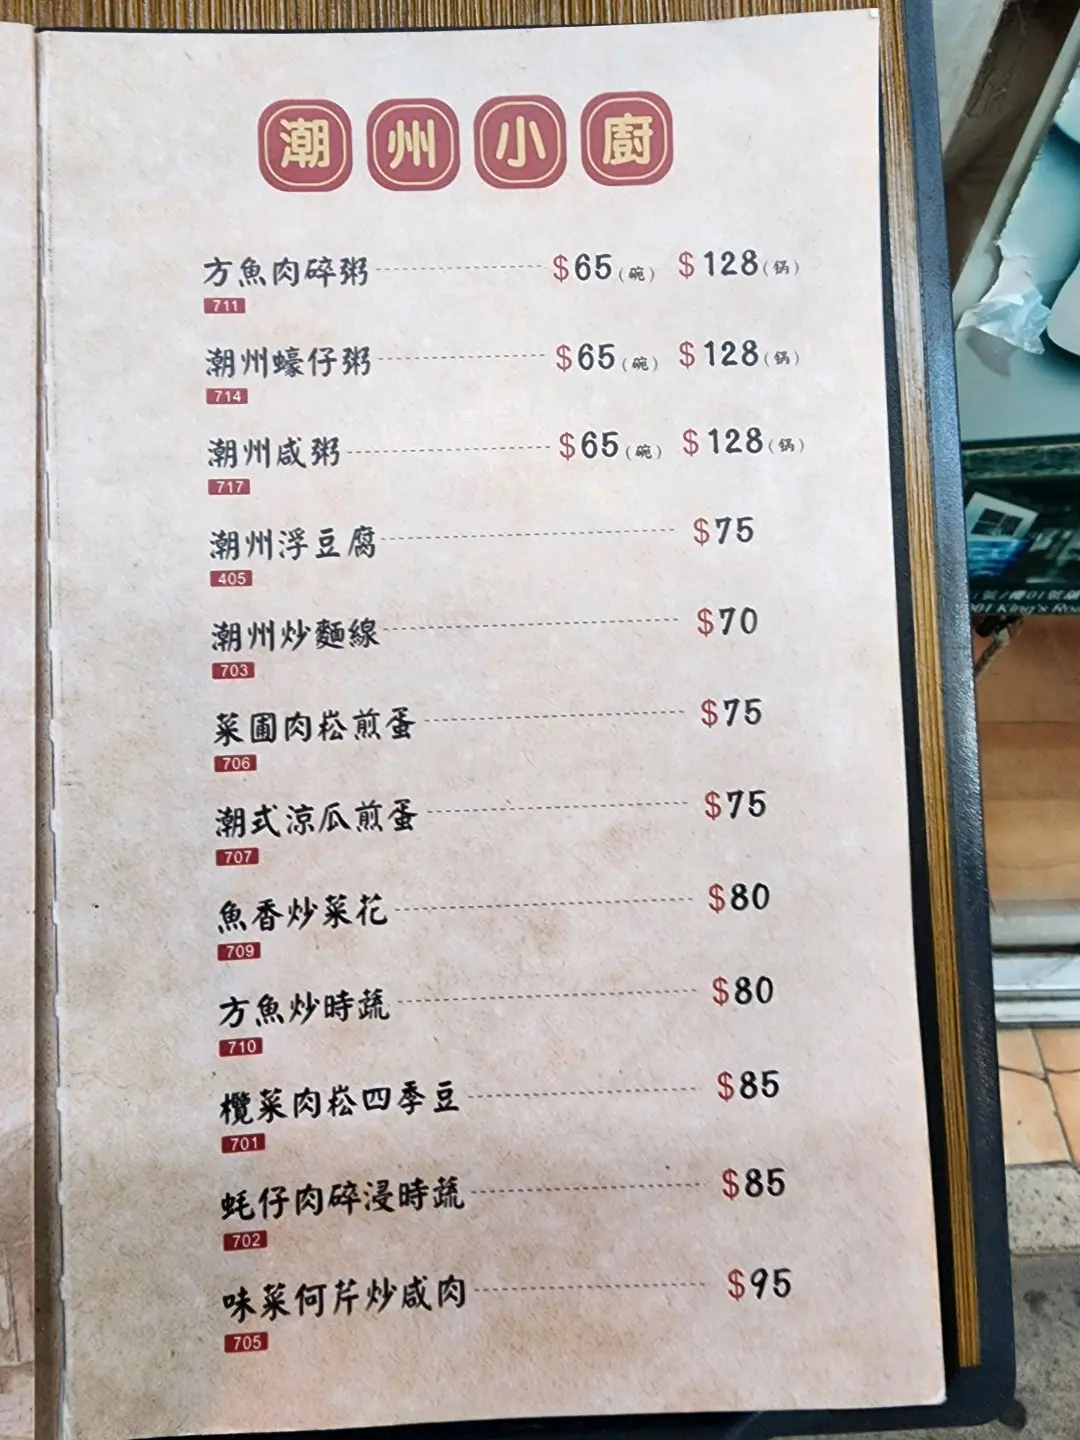 潮州小廚
方魚肉碎粥 $65(碗) $128(锅)
711
潮州蠔仔粥 $65(碗) $128(锅)
714
潮州咸粥 $65(碗) $128(锅)
717
潮州浮豆腐 $75
405
潮州炒麵線 $70
703
菜圃肉崧煎蛋 $75
706
潮式涼瓜煎蛋 $75
707
魚香炒菜花 $80
709
方魚炒時蔬 $80
710
欖菜肉崧四季豆 $85
701
蚝仔肉碎浸時蔬 $85
702
味菜何芹炒咸肉 $95
705
01 King's